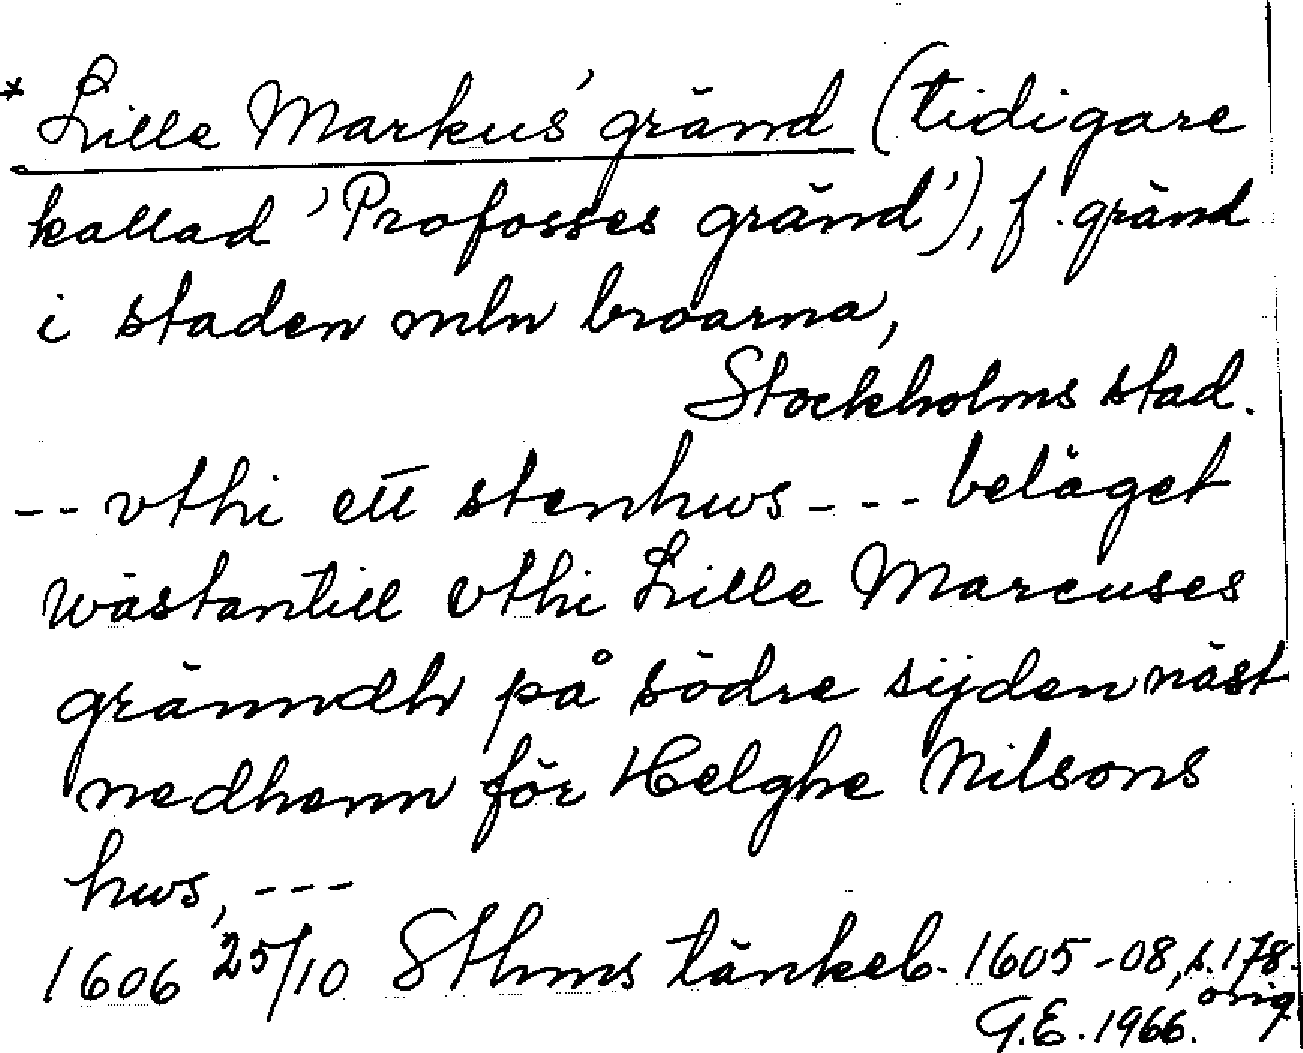 * Lille Markus' gränd (tidigare
kallad 'Profosses gränd'), f. gränd
i staden mln broarna,
Stockholms stad.
-- vthi ett stenhws --- beläget
wästantill vthi Lille Marcuses
gränndh på södre sijden näst
nedhenn för Helghe Nilsons
hws, ---
1606 25/10 Sthms tänkeb. 1605-08, s. 178.
orig.
G.E. 1966.